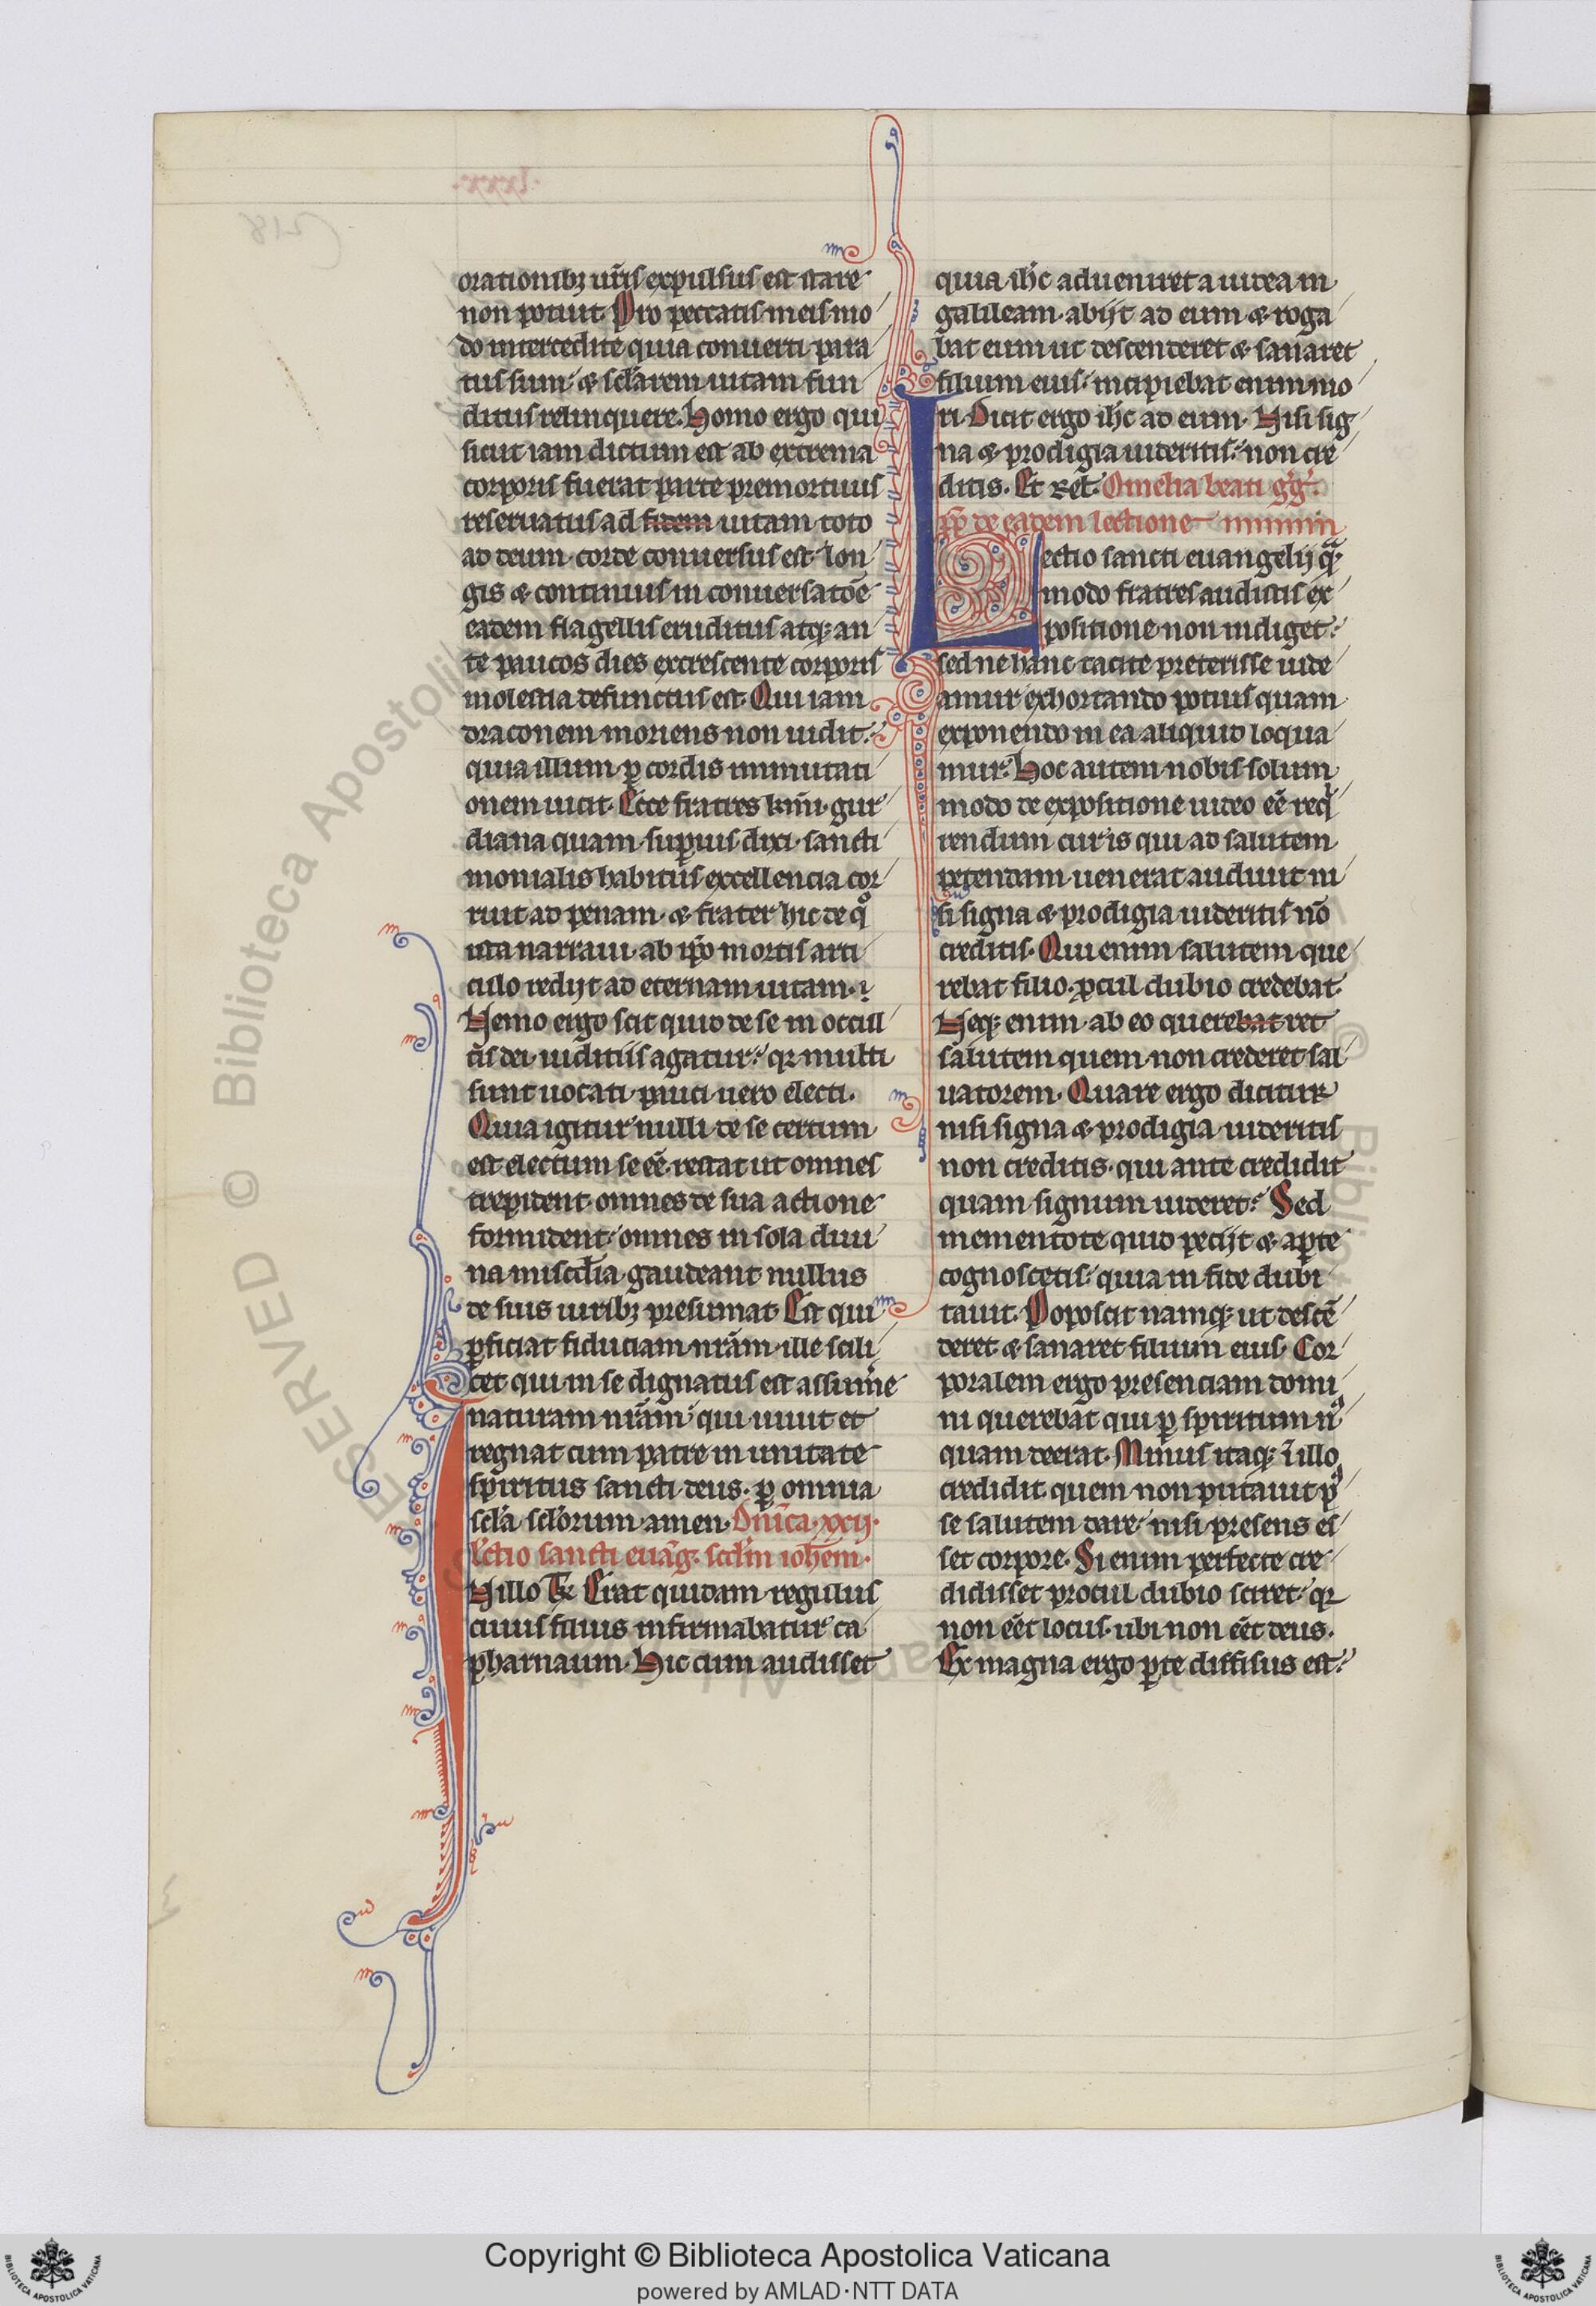 orationibꝫ ur̄is expulsus est stare
non potuit. Pro peccatis meis mo
do intercedite quia conuerti para
tus sum. ⁊ sclarem uitam fun
ditus relinquere. Homo ergo qui
sicut iam dictum est ab extrema
corporis fuerat parte premortuus
reseruatus ad fidem uitam toto
ad deum corde conuersus est. lon
gis ⁊ continuis in conuersatōe
eadem flagellis eruditus atqꝫ an
te paucos dies excrescente corporis
molestia defunctus est. Qui iam
draconem moriens non uidit.
quia illum ꝑ cordis immutati
onem uicit. Ecce fratres kmi gur
diana quam superius dixi sancti
monialis habitus excellencia cor
ruit ad penam. ⁊ frater hic de qo
ista narraui ab ip̄o mortis arti
culo redijt ad eternam uitam.
Nemo ergo scit quid de se in occul
tis dei iuditiis agatur. qꝛ multi
sunt uocati pauci uero electi.
Quia igitur nulli de se certum
est electum se eē. restat ut omnes
trepident omnes de sua actione
formident. omnes in sola diui
na miscdia gaudeant nullus
de suis uiribꝫ presumat. Est qui
ꝑficiat fiduciam nr̄am. ille scili
cet qui in se dignatus est assumere
naturam nr̄am. qui uiuit et
regnat cum patre in unitate
spiritus sancti deus. ꝑ omnia
scl̄a scl̄orum amen. Dn̄ica. xxij.
lctio sancti euāg. scdm ioh̄em.
N illo tꝑ. Erat quidam regulus
cuius filius infirmabatur ca
pharnaum. Hic cum audisset
quia ih̄c adueniret a iudea in
galileam. abijt ad eum ⁊ roga
bat eum ut descenderet ⁊ sanaret
filium eius. incipiebat enim mo
ri. Dicit ergo ih̄c ad eum. Nisi sig
na ⁊ prodigia uideritis. non cre
ditis. Et rel̄. Omelia beati g̃g̃.
pp̄ de eadem lectione
Lectio sancti euangelij qa
modo fratres audistis ex
positione non indiget.
sed ne hanc tacite preterisse uide
amur exhortando potius quam
exponendo in ea aliquid loqua
mur. Hoc autem nobis solum
modo de expositione uideo eē reqi
rendum cur is qui ad salutem
petendam uenerat audiuit ni
si signa ⁊ prodigia uideritis nō
creditis. Qui enim salutem que
rebat filio. ꝓcul dubio credebat.
Neqꝫ enim ab eo querebat ret
salutem quem non crederet sal
uatorem. Quare ergo dicitur
nisi signa ⁊ prodigia uideritis
non creditis. qui ante credidit
quam signum uideret. Sed
mementote quid pecijt ⁊ aꝑte
cognoscetis. quia in fide dubi
tauit. Poposcit namqꝫ ut descē
deret ⁊ sanaret filium eius. Cor
poralem ergo presenciam domi
ni querebat qui ꝑ spiritum nus
quam deerat. Minus itaqꝫ ī illo
credidit quem non putauit pos
se salutem dare. nisi presens es
set corpore. Si enim perfecte cre
didisset procul dubio sciret. qꝛ
non eēt locus ubi non eēt deus.
Ex magna ergo ꝑte diffisus est.
Copyright © Biblioteca Apostolica Vaticana
powered by AMLAD·NTT DATA